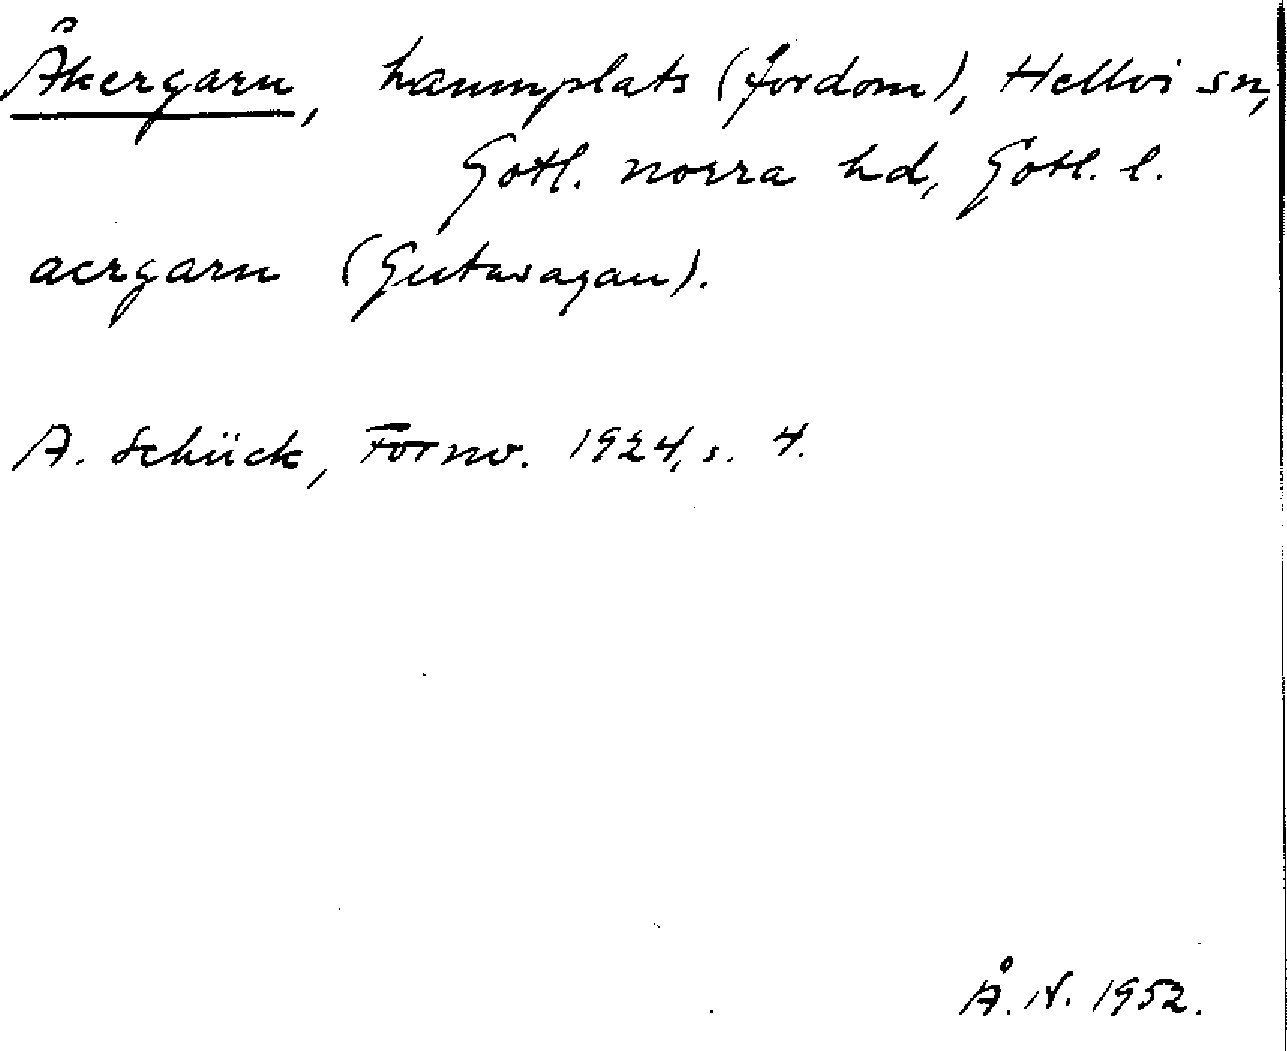 Åkergarn, hamnplats (fordom), Hellvi sn,
Gotl. norra hd, Gotl. l.
acrgarn (Gutasagan).
A. Schück, Fornv. 1924, s. 4.
Å. N. 1952.